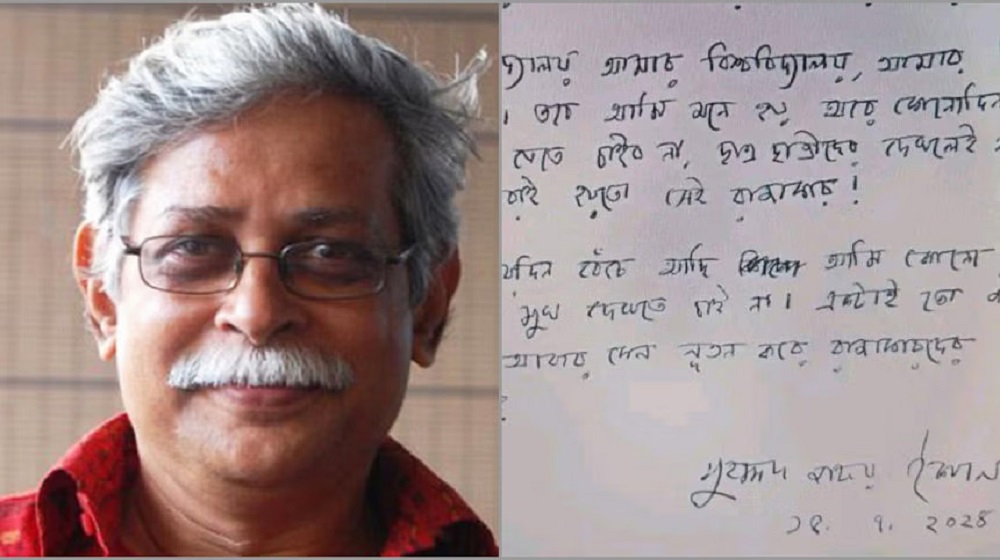 দ্যালয় আমার বিশ্ববিদ্যালয়, আমার
। তবে আমি মনে হয় আর কোনোদিন
যেতে চাইব না, ছাত্র ছাত্রীদের দেখলেই
রাই হয়তো সেই রাজাকার!
য়দিন বেঁচে আছি আমি কোনো
মুখ দেখতে চাই না। একটাই তো
আবার কেন নূতন করে রাজাকারদের
মুহম্মদ জাফর ইকবাল
৭. ২০২৪